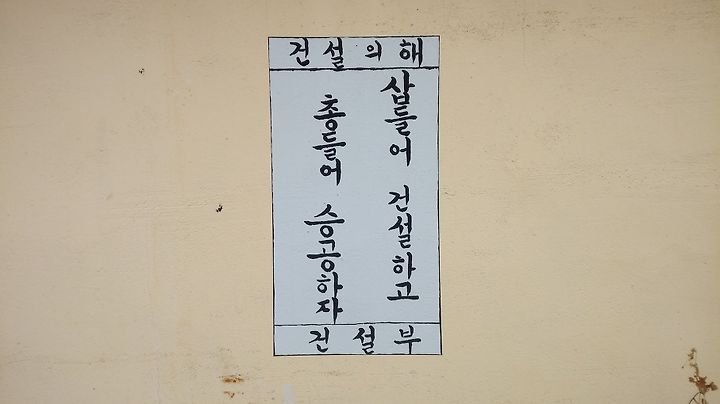 건설의 해
삽들어 건설하고
총들어 승공하자
건설부